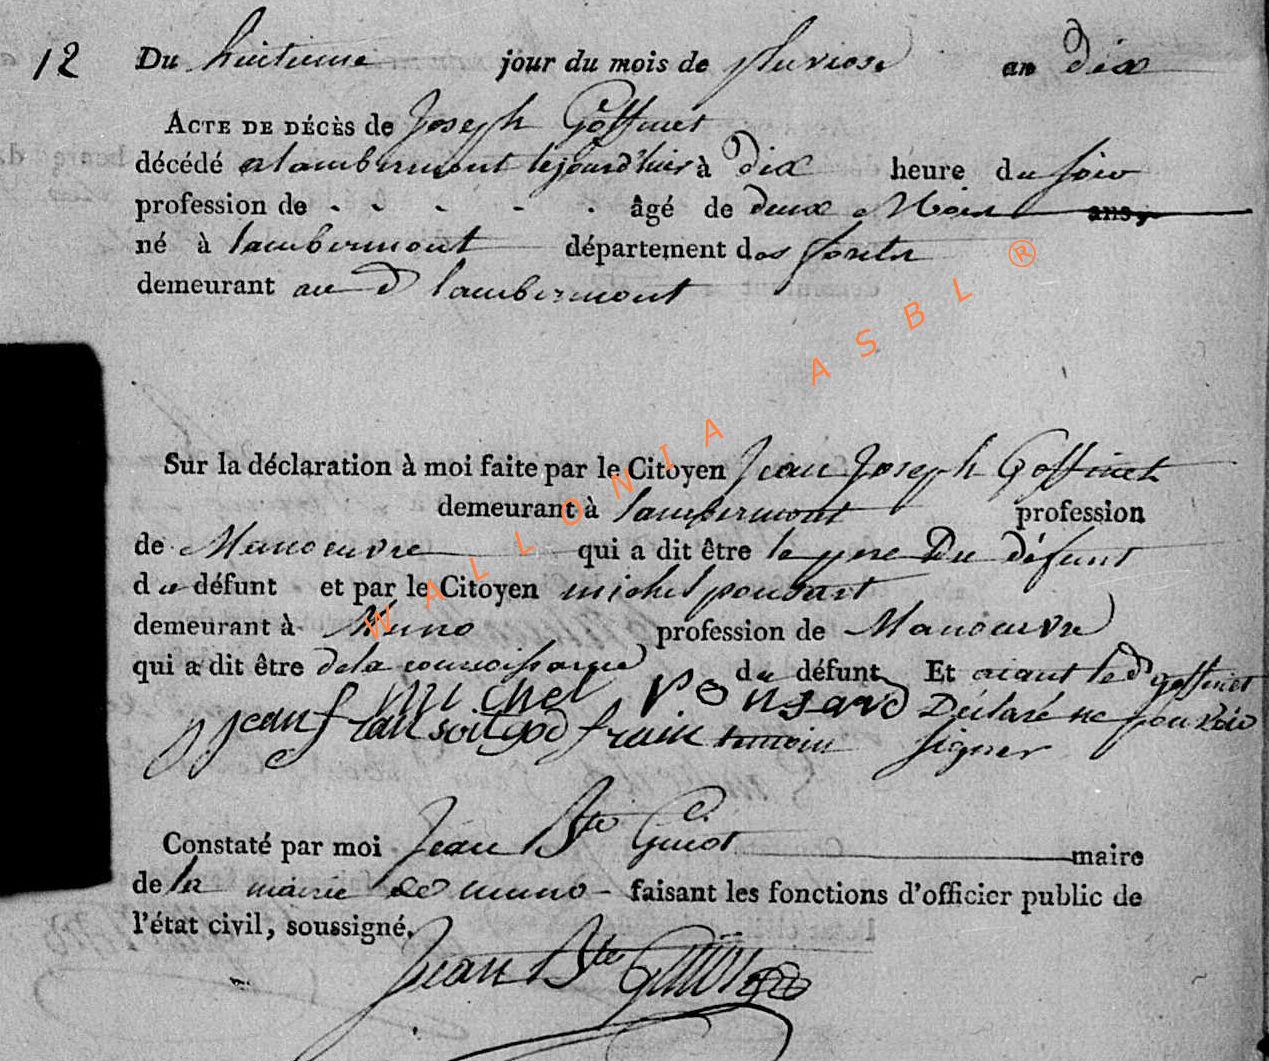 12 Du huitieme jour du mois de pluviose an dix
ACTE DE DÉCÈS de Joseph Gôffinet
décédé a lambermont lejourd'hier à dix heure du soir
profession de - - - - - âgé de deux Mois ans
né à lambermont département des forets
demeurant au d lambermont
Sur la déclaration à moi faite par le Citoyen Jean Joseph Goffinet
demeurant à lambermont profession
de Manoeuvre qui a dit être le pere Du défunt
du défunt et par le Citoyen michel ponsart
demeurant à Muno profession de Manoeuvre
qui a dit être de la connoissance du défunt Et aiant led goffinet
Michel Ponsard Déclaré ne pouvoir
jean godfrain temoin signer
Constaté par moi Jean Bte Guiot maire
de la mairie de muno faisant les fonctions d'officier public de
l'état civil, soussigné.
Jean Bte Guiot
WALLONIA ASBL ®